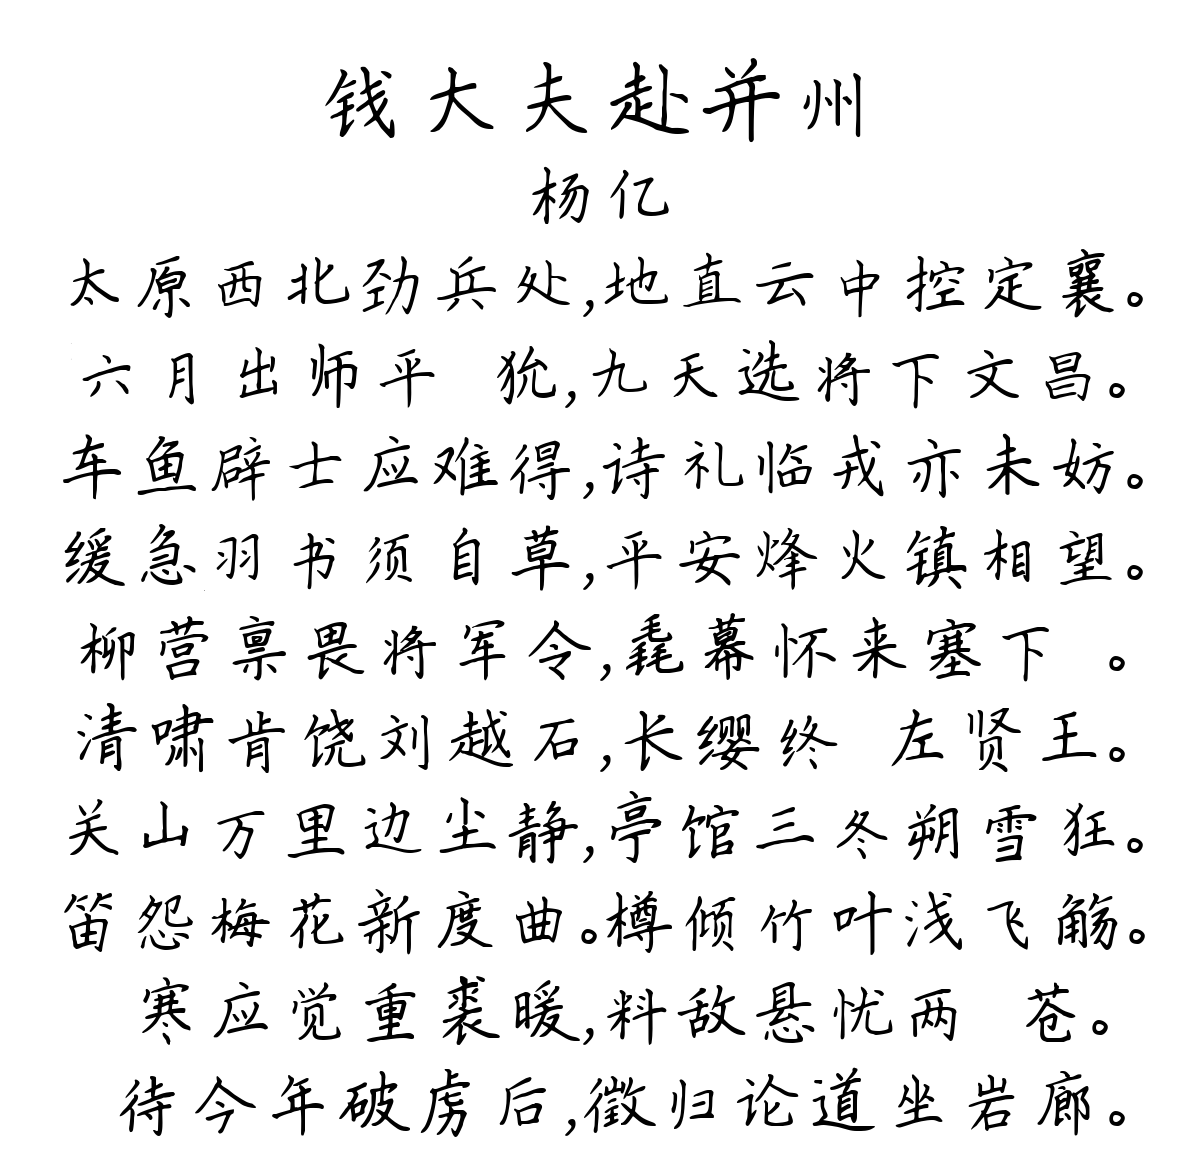 钱大夫赴并州
杨亿
太原西北劲兵处,地直云中控定襄。
六月出师平 狁,九天选将下文昌。
车鱼辟士应难得,诗礼临戎亦未妨。
缓急羽书须自草,平安烽火镇相望。
柳营禀畏将军令,毳幕怀来塞下 。
清啸肯饶刘越石,长缨终 左贤王。
关山万里边尘静,亭馆三冬朔雪狂。
笛怨梅花新度曲。樽倾竹叶浅飞觞。
寒应觉重裘暖,料敌悬忧两 苍。
待今年破虏后,徵归论道坐岩廊。